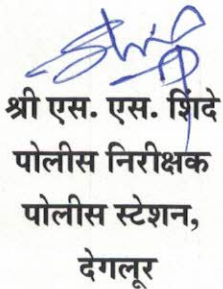 श्री एस. एस. शिंदे
पोलीस निरीक्षक
पोलीस स्टेशन,
देगलूर